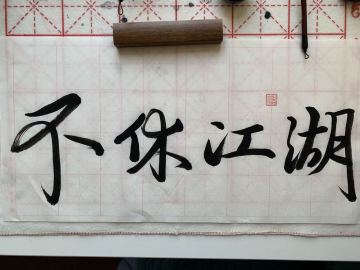 不休江湖